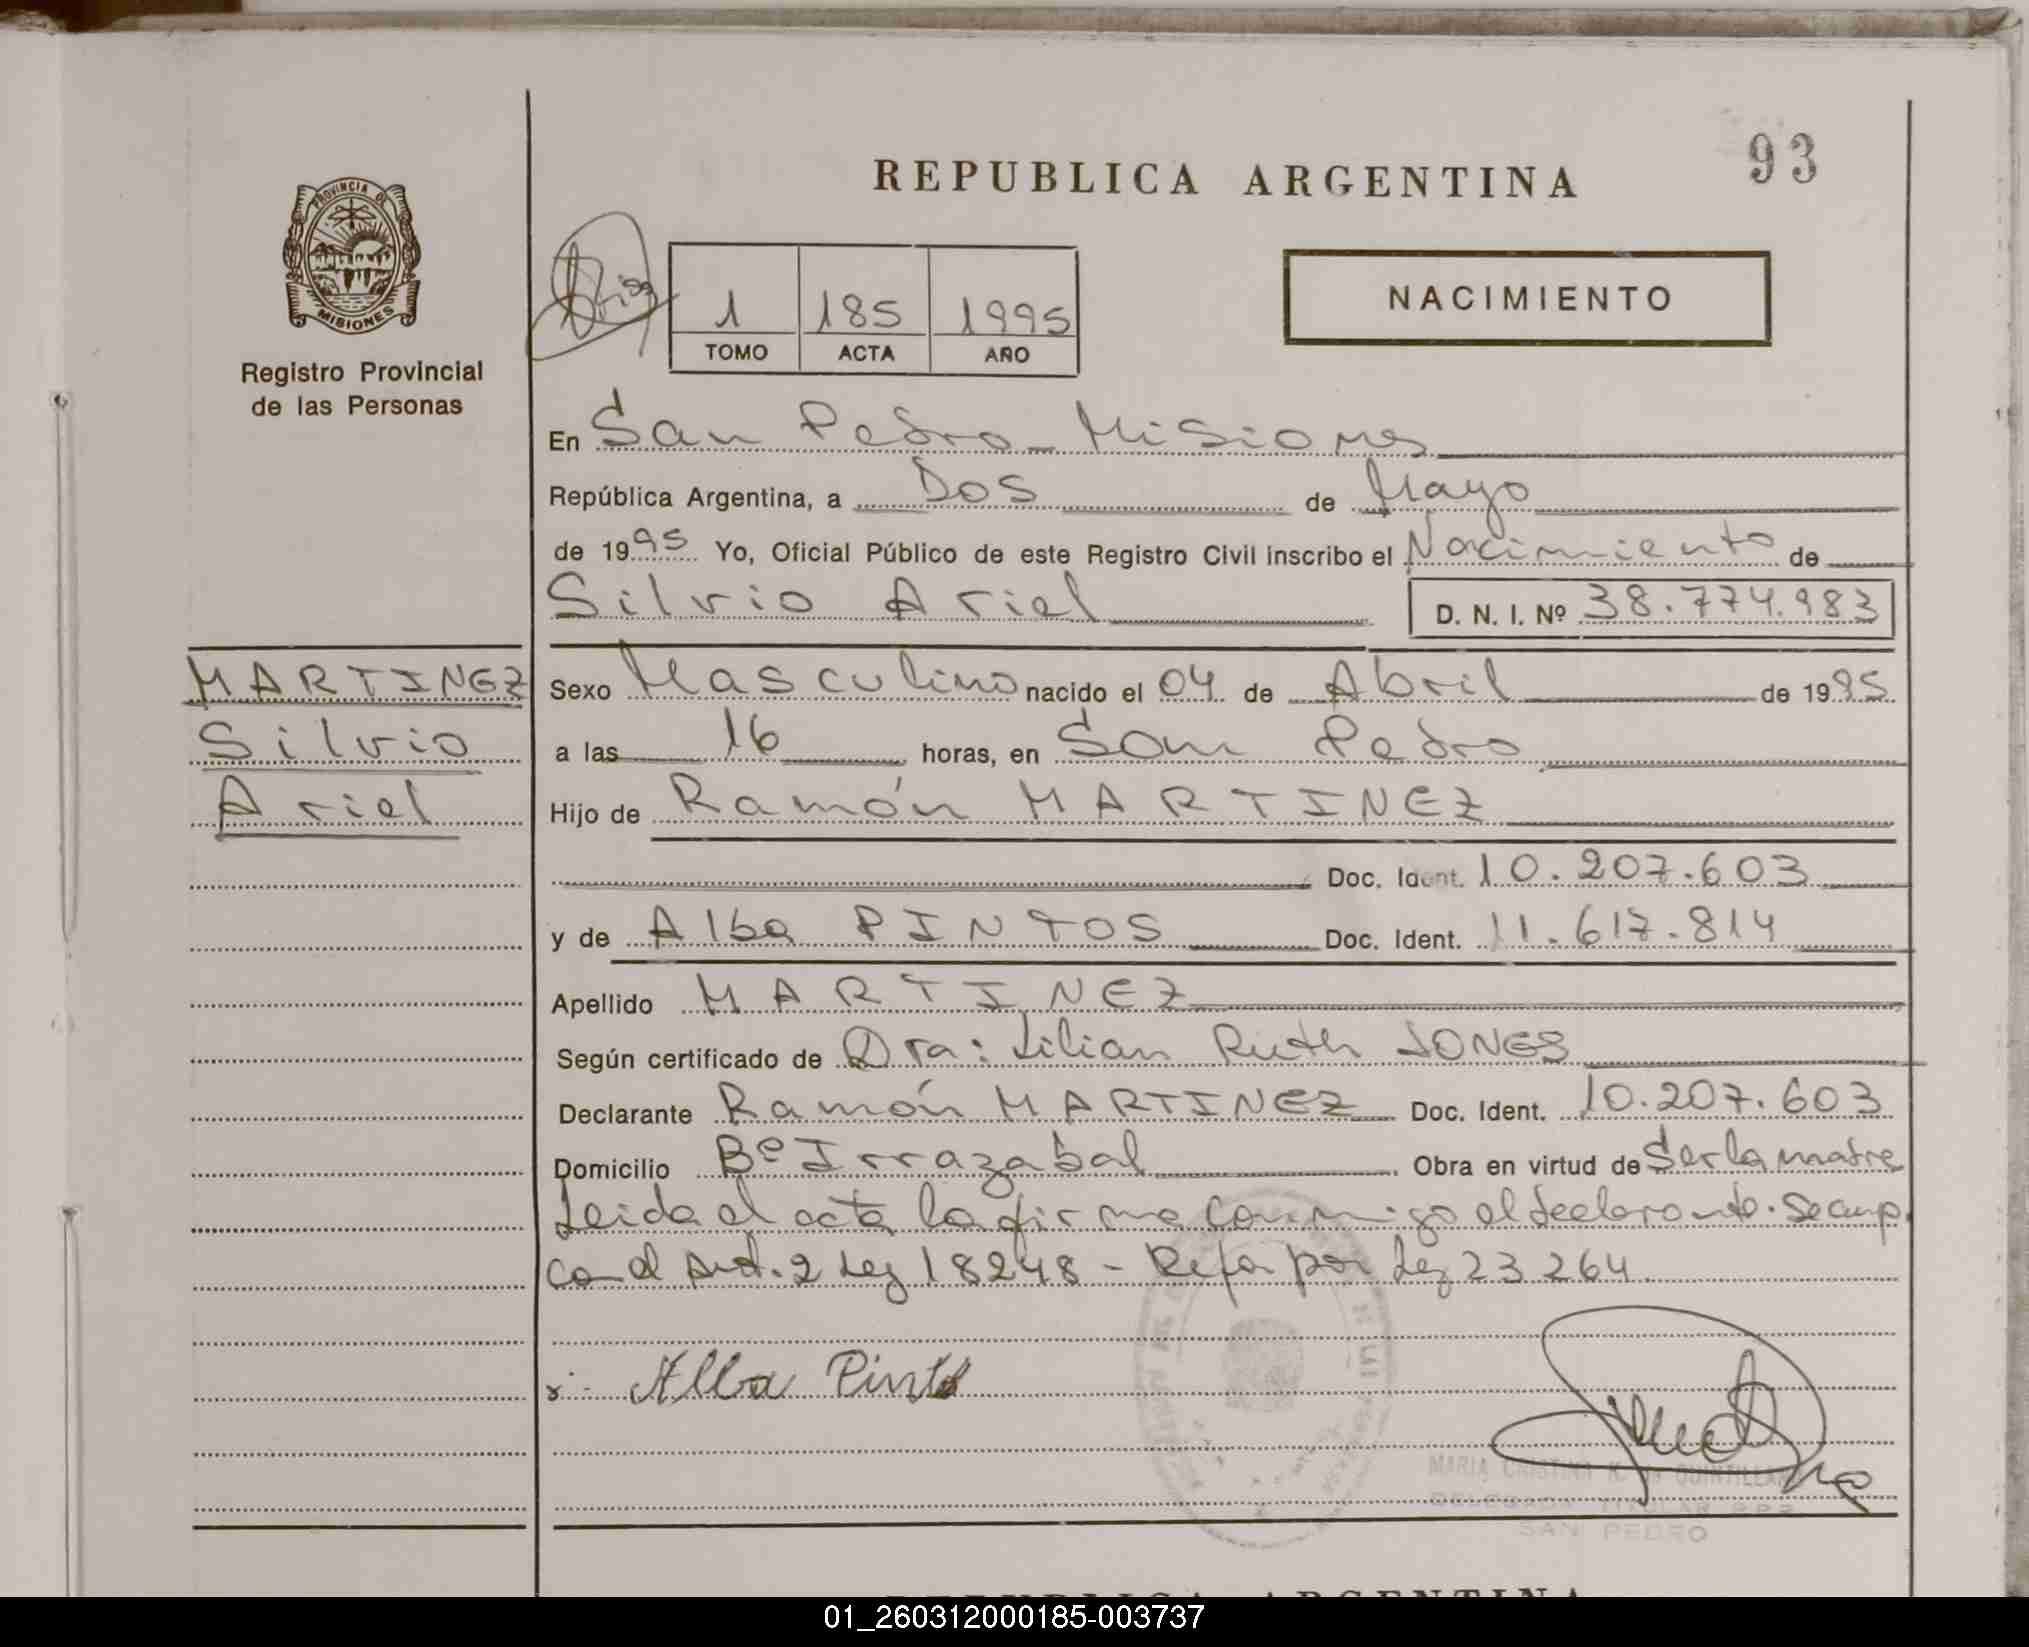 93
REPUBLICA ARGENTINA
PROVINCIA DE
MISIONES
Registro Provincial
de las Personas
NACIMIENTO
1 185 1995
TOMO ACTA AÑO
En San Pedro - Misiones
República Argentina, a Dos de Mayo
de 1995 Yo, Oficial Público de este Registro Civil inscribo el Nacimiento de
Silvio Ariel D. N. I. Nº 38.774.983
MARTINEZ
Silvio
Ariel
Sexo Masculino nacido el 04 de Abril de 1995
a las 16 horas, en San Pedro
Hijo de Ramón MARTINEZ
Doc. Ident. 10.207.603
y de Alba PINTOS Doc. Ident. 11.617.814
Apellido MARTINEZ
Según certificado de Dra: Lilian Ruth JONES
Declarante Ramón MARTINEZ Doc. Ident. 10.207.603
Domicilio Bº Irrazabal Obra en virtud de Ser la madre
Leida el acta la firma conmigo el declarante. Se cump.
con el Art. 2 Ley 18248 - Refor por Ley 23264
x - Alba Pintos
MARIA CRISTINA K. de QUINTILLAN
DELEGADA TITULAR R.P.P.
SAN PEDRO
REPUBLICA ARGENTINA
01_260312000185-003737